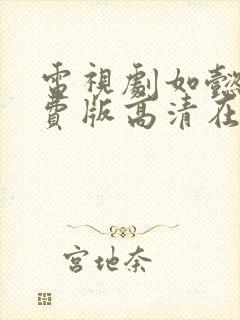 電視劇如懿
費版高清在
宮地奈